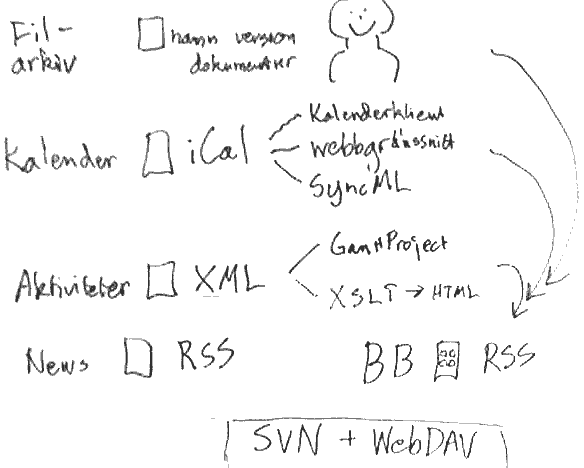 Fil-
arkiv
namn version
dokumenter
Kalender iCal
Kalenderklient
webbgränssnitt
SyncML
Aktiviteter XML
GanttProject
XSLT → HTML
News RSS
BB RSS
SVN + WebDAV